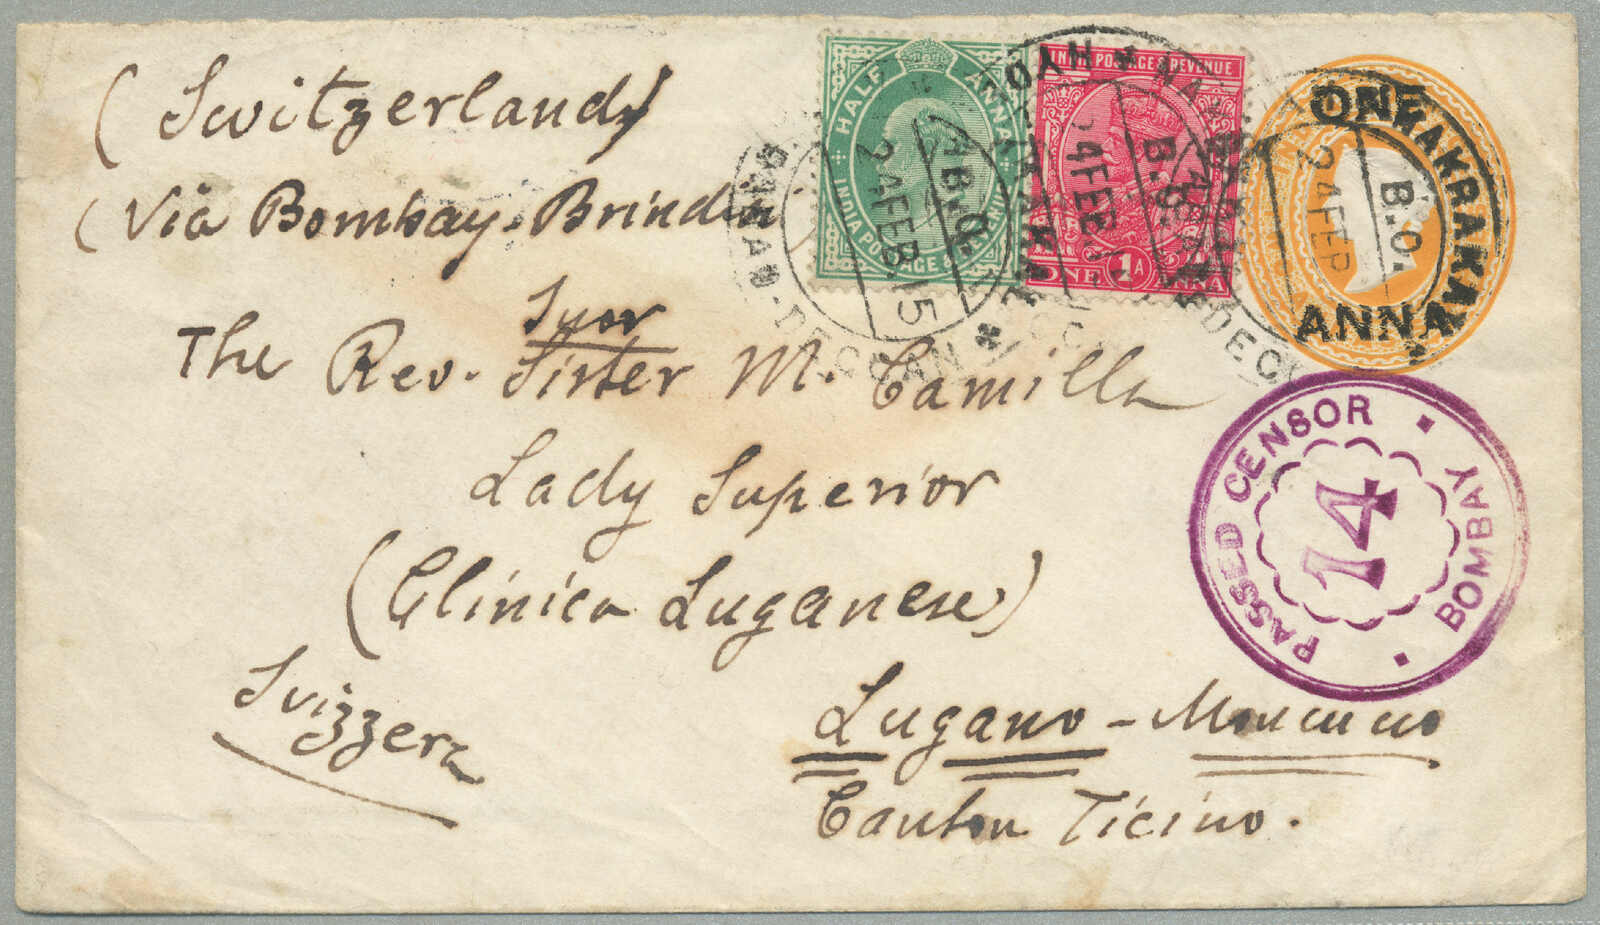 (Switzerland)
(Via Bombay-Brindisi)
Suor
The Rev. Sister M. Camilla
Lady Superior
(Clinica Luganese)
Svizzera
Lugano-Moncucco
Canton Ticino.
HALF ANNA
INDIA POSTAGE &
INDIA POSTAGE & REVENUE
ONE 1A ANNA
ONE
ANNA
B.O.
24 FEB. 15
DECCAN
B.O.
24 FEB
B.O.
24 FEB
PASSED CENSOR
14
BOMBAY